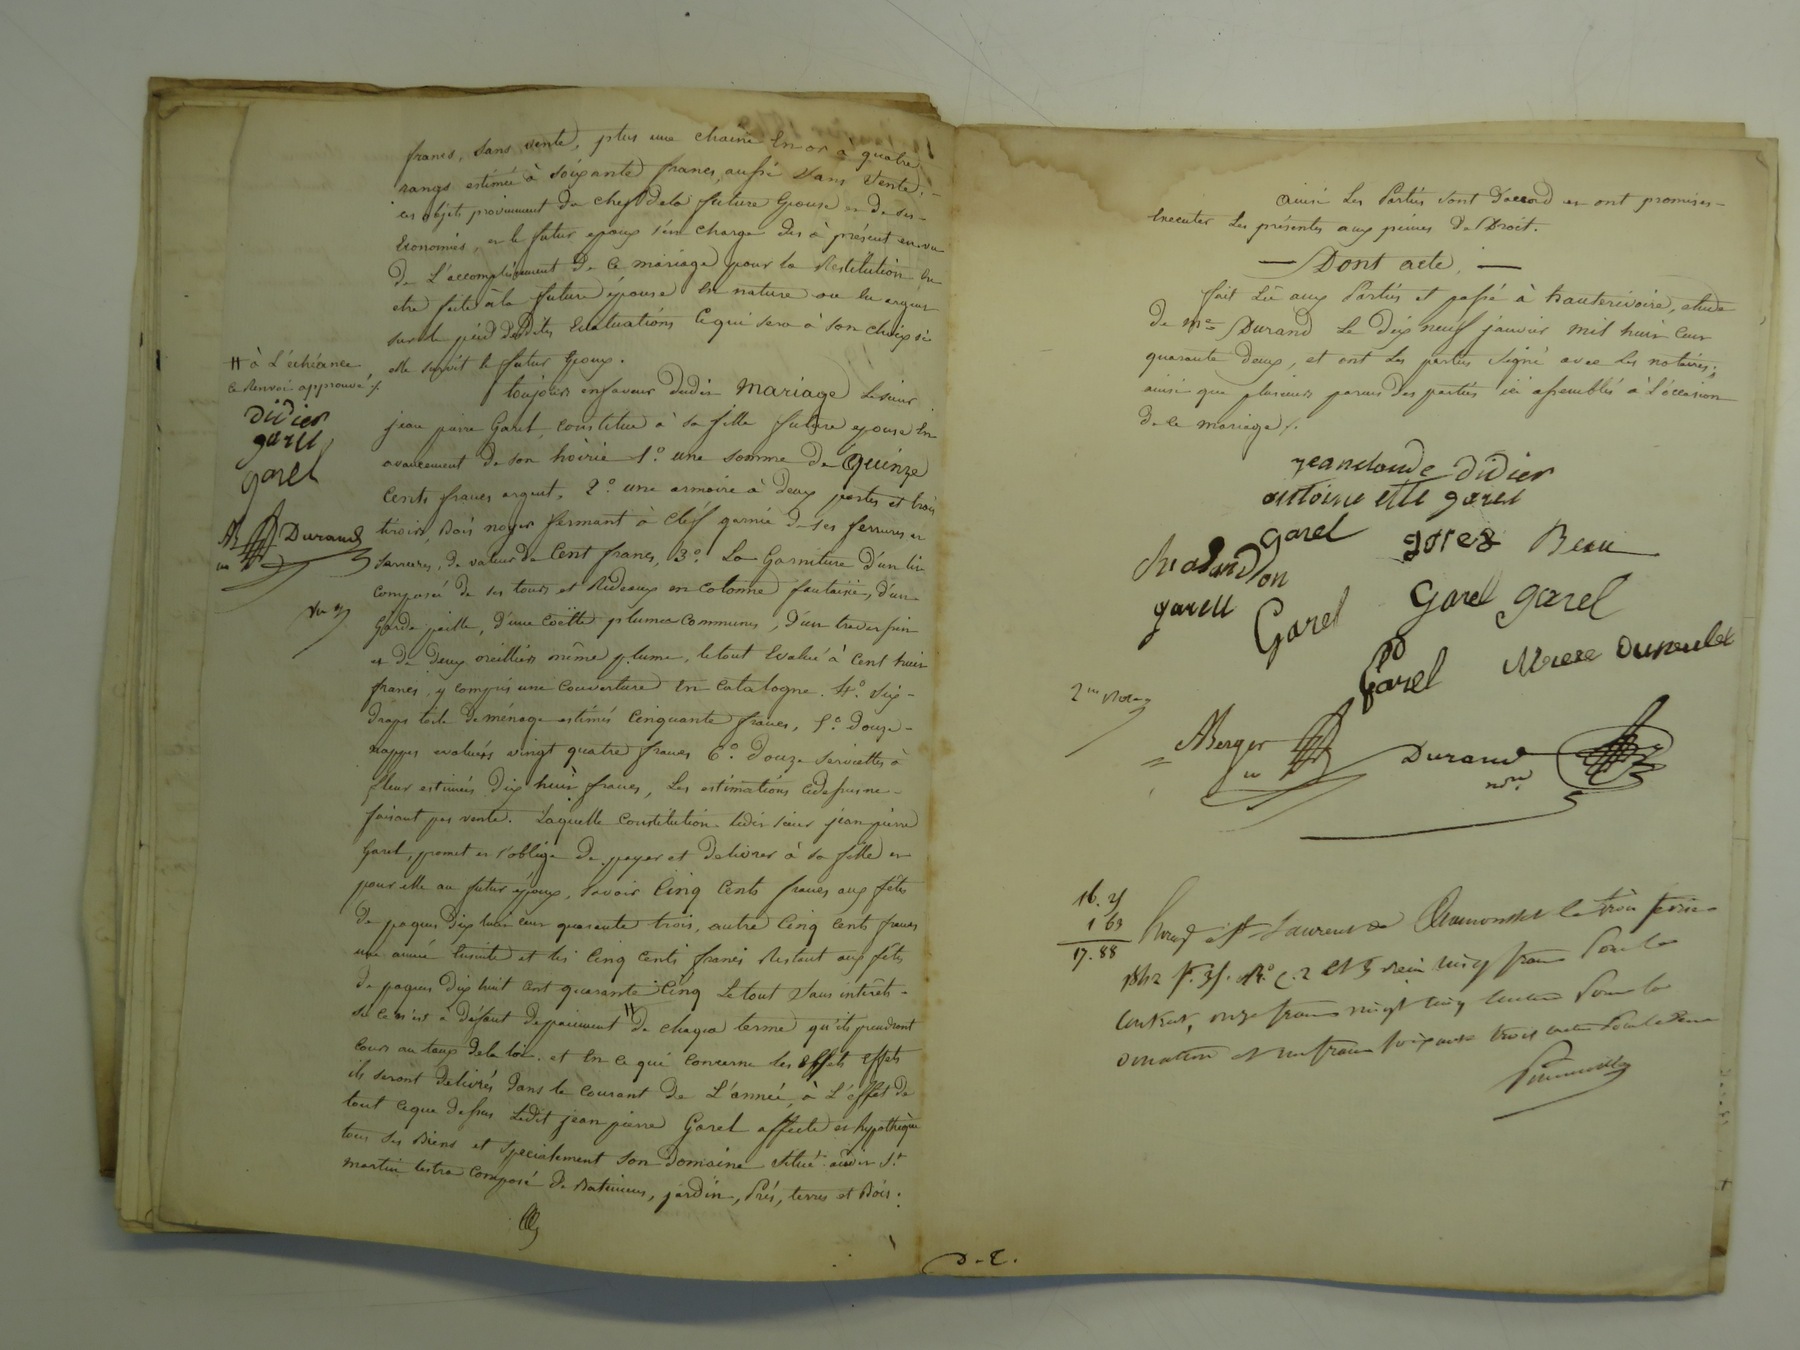 francs, sans vente, plus une chaine en or à quatre
rangs estimée à soixante francs, aussi sans vente,
ces objets proviennent du chef de la future Epouse et de ses
Economies, et le futur epoux s'en charge dès à présent en vu
De L'accomplissement de ce mariage pour la Restitution en
etre faite à la future épouse en nature ou en argent
sur le pied desdites Evaluations Ce qui sera à son choix si
elle survit le futur Epoux.
toujours en faveur dudit mariage Le sieur
jean pierre Garel, constitue à sa fille future epouse En
avancement de son hoirie 1.° une somme de quinze
Cents francs argent, 2.° une armoire à deux portes et trois
tiroirs, Bois noyer fermant à clef garnie de ses ferrures et
Serrures, de valeur de Cent francs, 3.° La Garniture d'un lit
composée de ses tours et Rideaux en cotonne fantaisie, d'un
Garde paille, d'une Coëtte plumes communes, d'un traversin
et de deux oreillers même plume, le tout Evalué à Cent huit
francs, y compris une couverture en catalogne. 4.° Six
draps toile de ménage estimés Cinquante francs, 5.° douze
nappes evaluées vingt quatre francs 6.° douze Serviettes à
fleur estimées Dix huit francs, Les estimations cidessus ne
faisant pas vente. Laquelle constitution ledit sieur jean pierre
Garel, promet et s'oblige de payer et delivrer à sa fille et
pour elle au futur époux, savoir Cinq Cents francs aux fêtes
De paques Dix huit cent quarante trois, autre Cinq Cents francs
une année Ensuite et les Cinq Cents francs Restant aux fêtes
De paques Dix huit cent quarante Cinq Le tout Sans intérêts
Si ce n'est à défaut de paiement # de chaque terme qu'ils prendront
cours au taux de la loi. et En ce qui Concerne les effets effets
ils seront delivrés dans le courant de L'année, à L'effet de
tout ce que dessus Ledit jean pierre Garel affecte et hypothèque
tous ses Biens et specialement son domaine situé audit S.t
martin lestra Composé de Batiments, jardin, Prés, terres et Bois.
# à L'échéance
Ce Renvoi approuvé
Didier
garel
garel
Durand
D. E.
ainsi Les Parties sont d'accord et ont promis
Executer Les présentes aux peines De Droit.
— Dont acte, —
fait Lû aux Parties et passé à hauterivoire, etude
De me Durand Le Dix neuf janvier mil huit Cent
quarante deux, et ont Les parties Signé avec Les notaires,
ainsi que plusieurs parens des parties ici assemblés à l'occasion
de ce mariage.
jeanclaude didier
antoinette garel
garel garel
garell Garel Garel garel
Garel
ABerger Durand
nre
16. 25
1 63
17. 88
Enregistré à St Laurent de Chamousset le trois février
1842 f.° 35. R.° C. 2 et 3 reçu cinq francs pour le
Contrat, onze francs vingt cinq centimes pour la
Donation et un franc soixante trois centimes pour le Décime